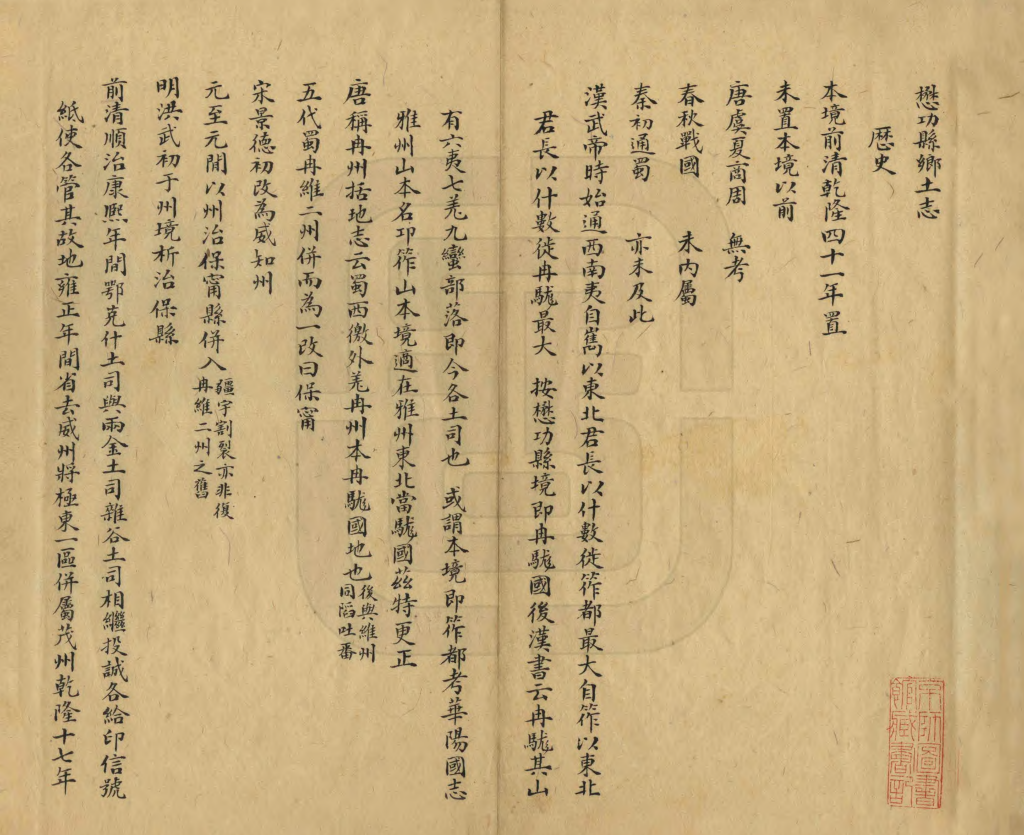 懋功縣鄉土志
歷史
本境前清乾隆四十一年置
未置本境以前
唐虞夏商周 無考
春秋戰國 未內屬
秦初通蜀 亦未及此
漢武帝時始通西南夷自嶲以東北君長以什數徙筰都最大自筰以東北
君長以什數徙冉駹最大 按懋功縣境即冉駹國後漢書云冉駹其山
有六夷七羌九蠻部落即今各土司也 或謂本境即筰都考華陽國志
雅州山本名邛筰山本境適在雅州東北當駹國茲特更正
唐稱冉州括地志云蜀西徼外羌冉州本冉駹國地也後與維州同陷吐番
五代蜀冉維二州併而為一改曰保甯
宋景德初改為威知州
元至元間以州治保甯縣併入疆宇割裂亦非復冉維二州之舊
明洪武初于州境析治保縣
前清順治康熙年間鄂克什土司與兩金土司雜谷土司相繼投誠各給印信號
紙使各管其故地雍正年間省去威州將極東一區併屬茂州乾隆十七年